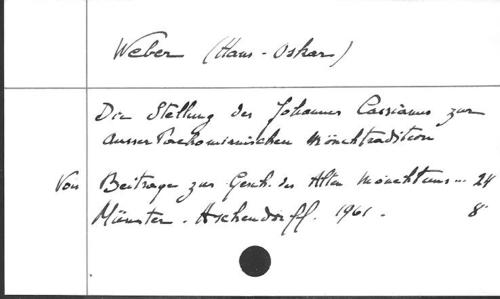 Weber (Hans-Oskar)
Die Stellung des Johannes Cassianus zur
ausser Pachomianischen Mönchtradition
Von Beitrage zur Gesch. des Alten Mönchtums... 24
Münster. Aschendorff. 1961. 8°